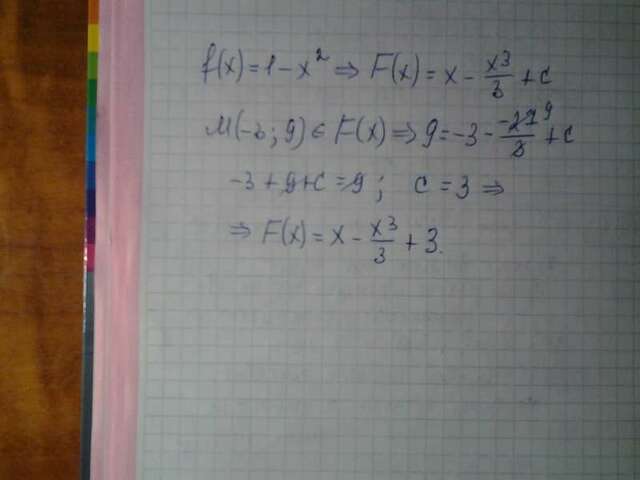 f(x) = 1 - x² ⇒ F(x) = x - x³/3 + C
M(-3; 9) ∈ F(x) ⇒ 9 = -3 - -27⁹/3 + C
-3 + 9 + C = 9; C = 3 ⇒
⇒ F(x) = x - x³/3 + 3.